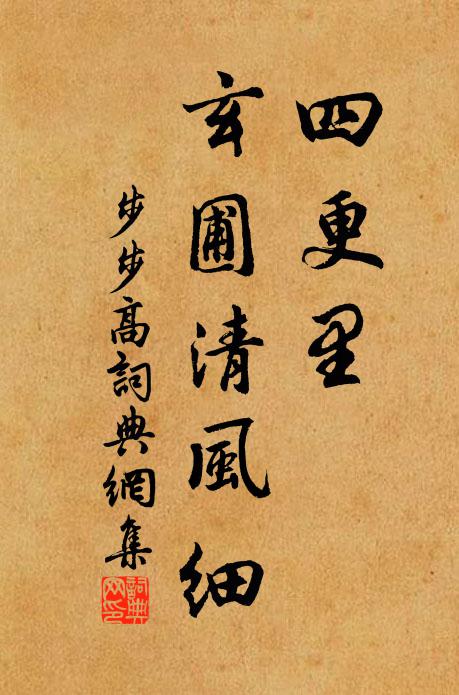 四更里
玄圃清風細
步步高詞典網集
詞典网印